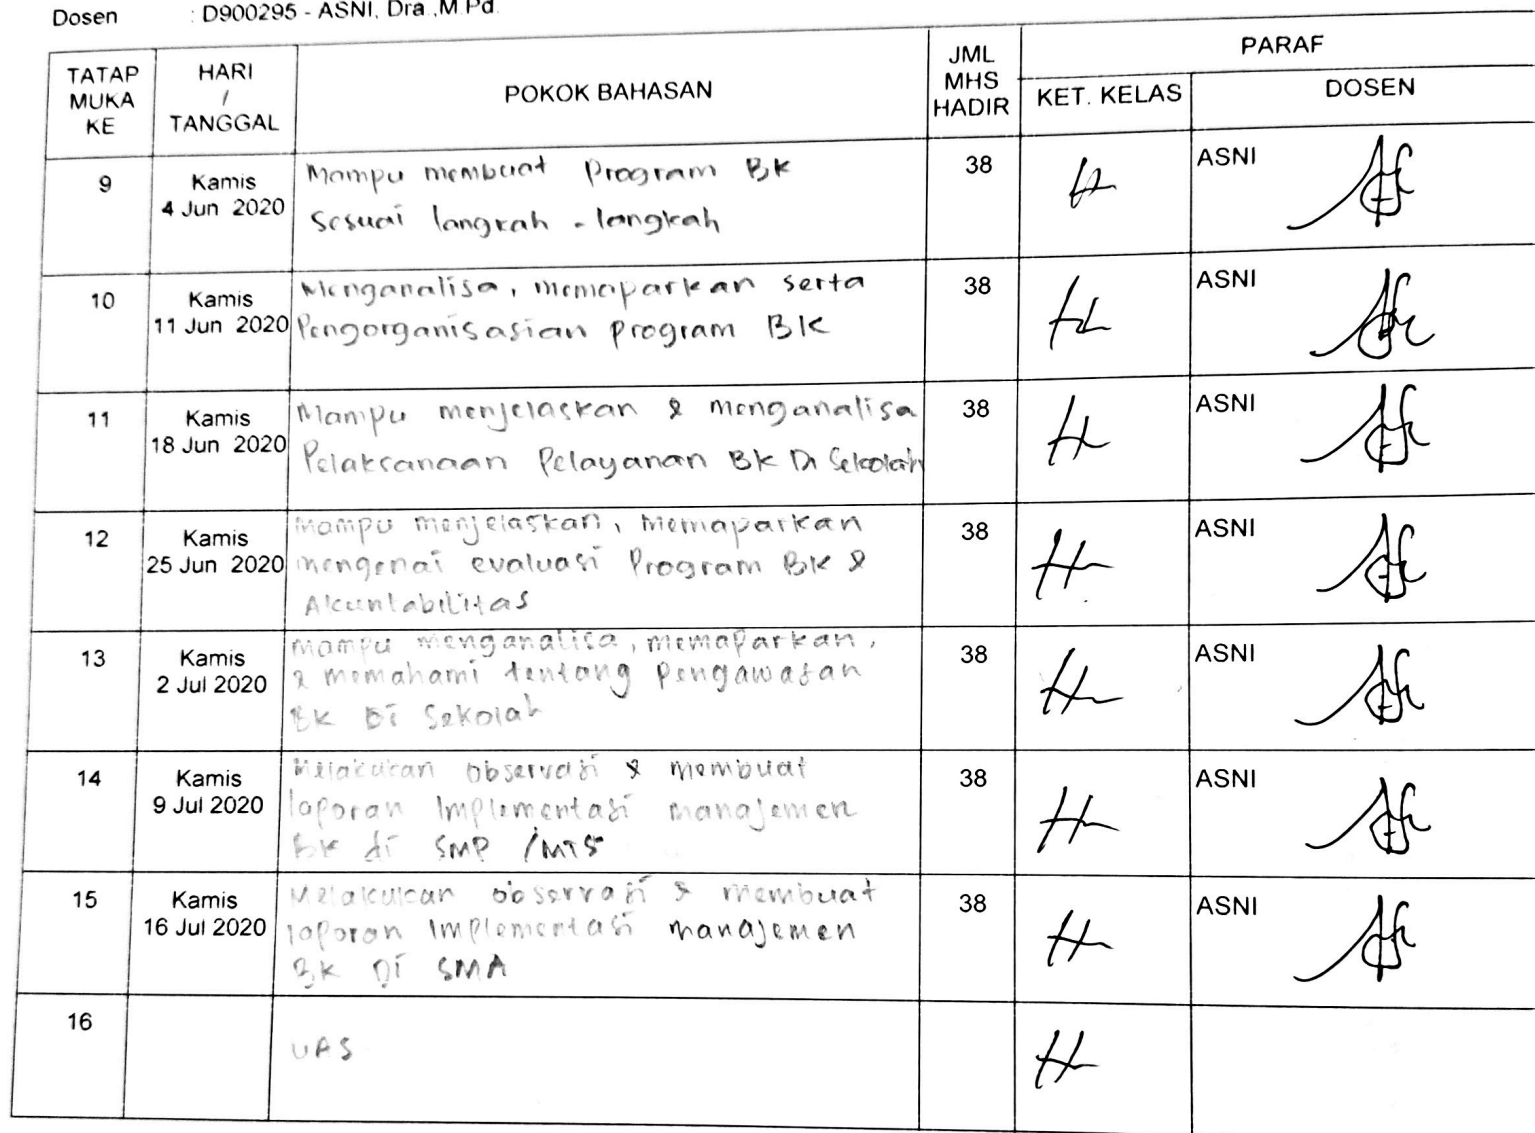 Dosen : D900295 - ASNI, Dra.,M.Pd.
TATAP MUKA KE
HARI / TANGGAL
POKOK BAHASAN
JML MHS HADIR
PARAF
KET. KELAS
DOSEN
9
Kamis
4 Jun 2020
Mampu membuat Program BK
Sesuai langkah - langkah
38
ASNI
10
Kamis
11 Jun 2020
Menganalisa, memaparkan serta
Pengorganisasian program BK
38
ASNI
11
Kamis
18 Jun 2020
Mampu menjelaskan & menganalisa
Pelaksanaan Pelayanan BK Di Sekolah
38
ASNI
12
Kamis
25 Jun 2020
Mampu menjelaskan, memaparkan
mengenai evaluasi Program BK &
Akuntabilitas
38
ASNI
13
Kamis
2 Jul 2020
Mampu menganalisa, memaparkan,
& memahami tentang Pengawasan
BK Di Sekolah
38
ASNI
14
Kamis
9 Jul 2020
Melakukan observasi & membuat
laporan Implementasi manajemen
BK di SMP /MTS
38
ASNI
15
Kamis
16 Jul 2020
Melakukan observasi & membuat
laporan Implementasi manajemen
BK Di SMA
38
ASNI
16
UAS